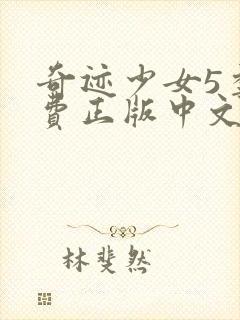 奇迹少女5季
費正版中文
林斐然